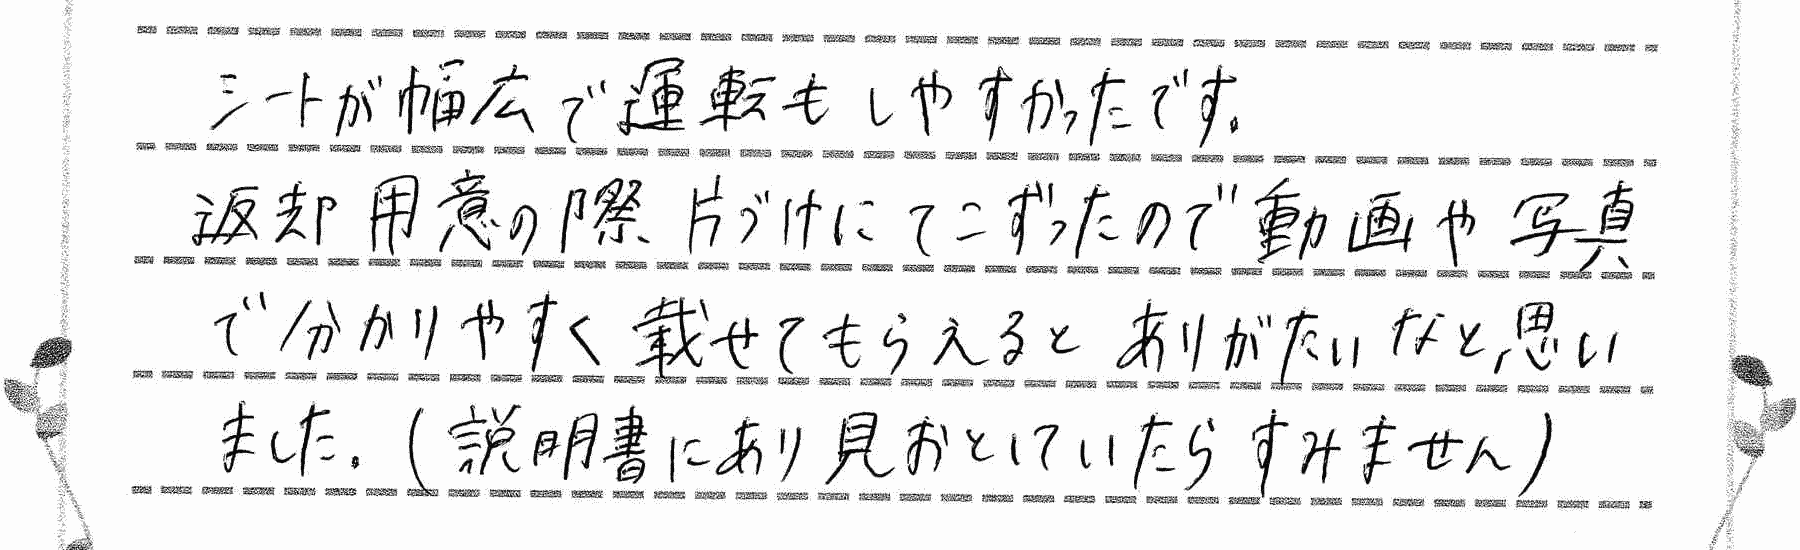 シートが幅広で運転もしやすかったです。
返却用意の際、片づけにてこずったので動画や写真
で分かりやすく載せてもらえるとありがたいなと思い
ました。(説明書にあり見おとしていたらすみません)